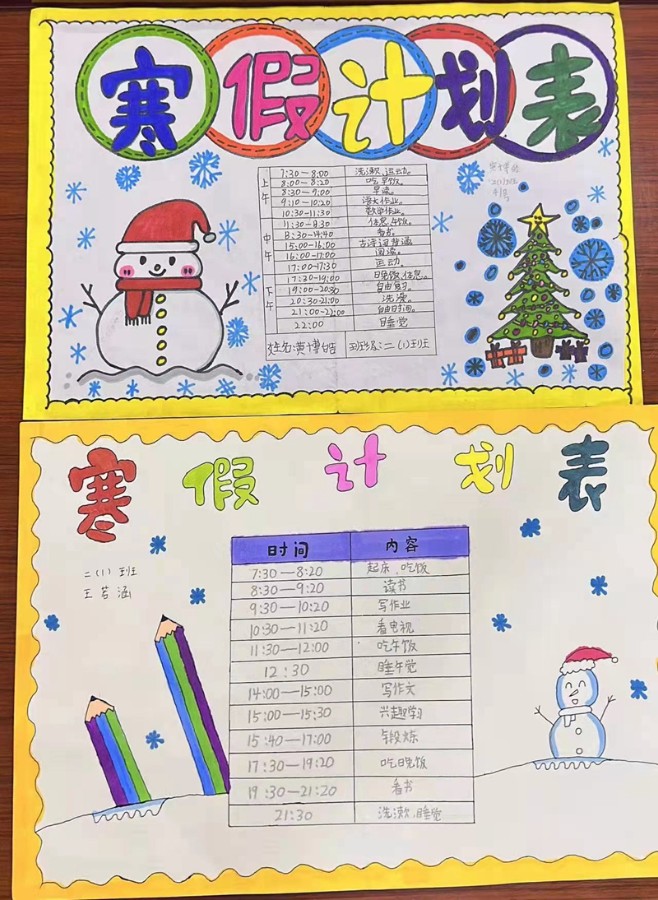 寒假计划表
上午
7:30—8:00 洗漱、运动。
8:00—8:20 吃早饭。
8:30—9:00 早读。
9:10—10:20 语文作业。
10:30—11:30 数学作业。
中午
15:00—16:00
16:00—17:00 阅读。
17:00—17:30 运动。
下午
17:30—19:00 吃晚饭、休息。
20:30—21:00 洗澡。
21:00—22:00 自由时间。
22:00 睡觉
姓名:黄博皓 班级:二(1)班
寒假计划表
二(1)班
王若涵
时间 内容
7:30—8:20 起床、吃饭
8:30—9:20 读书
9:30—10:20 写作业
10:30—11:20 看电视
11:30—12:00 吃午饭
12:30 睡午觉
14:00—15:00 写作文
15:00—15:30 兴趣学习
15:40—17:00 锻炼
17:30—19:20 吃晚饭
19:30—21:20 看书
21:30 洗漱、睡觉